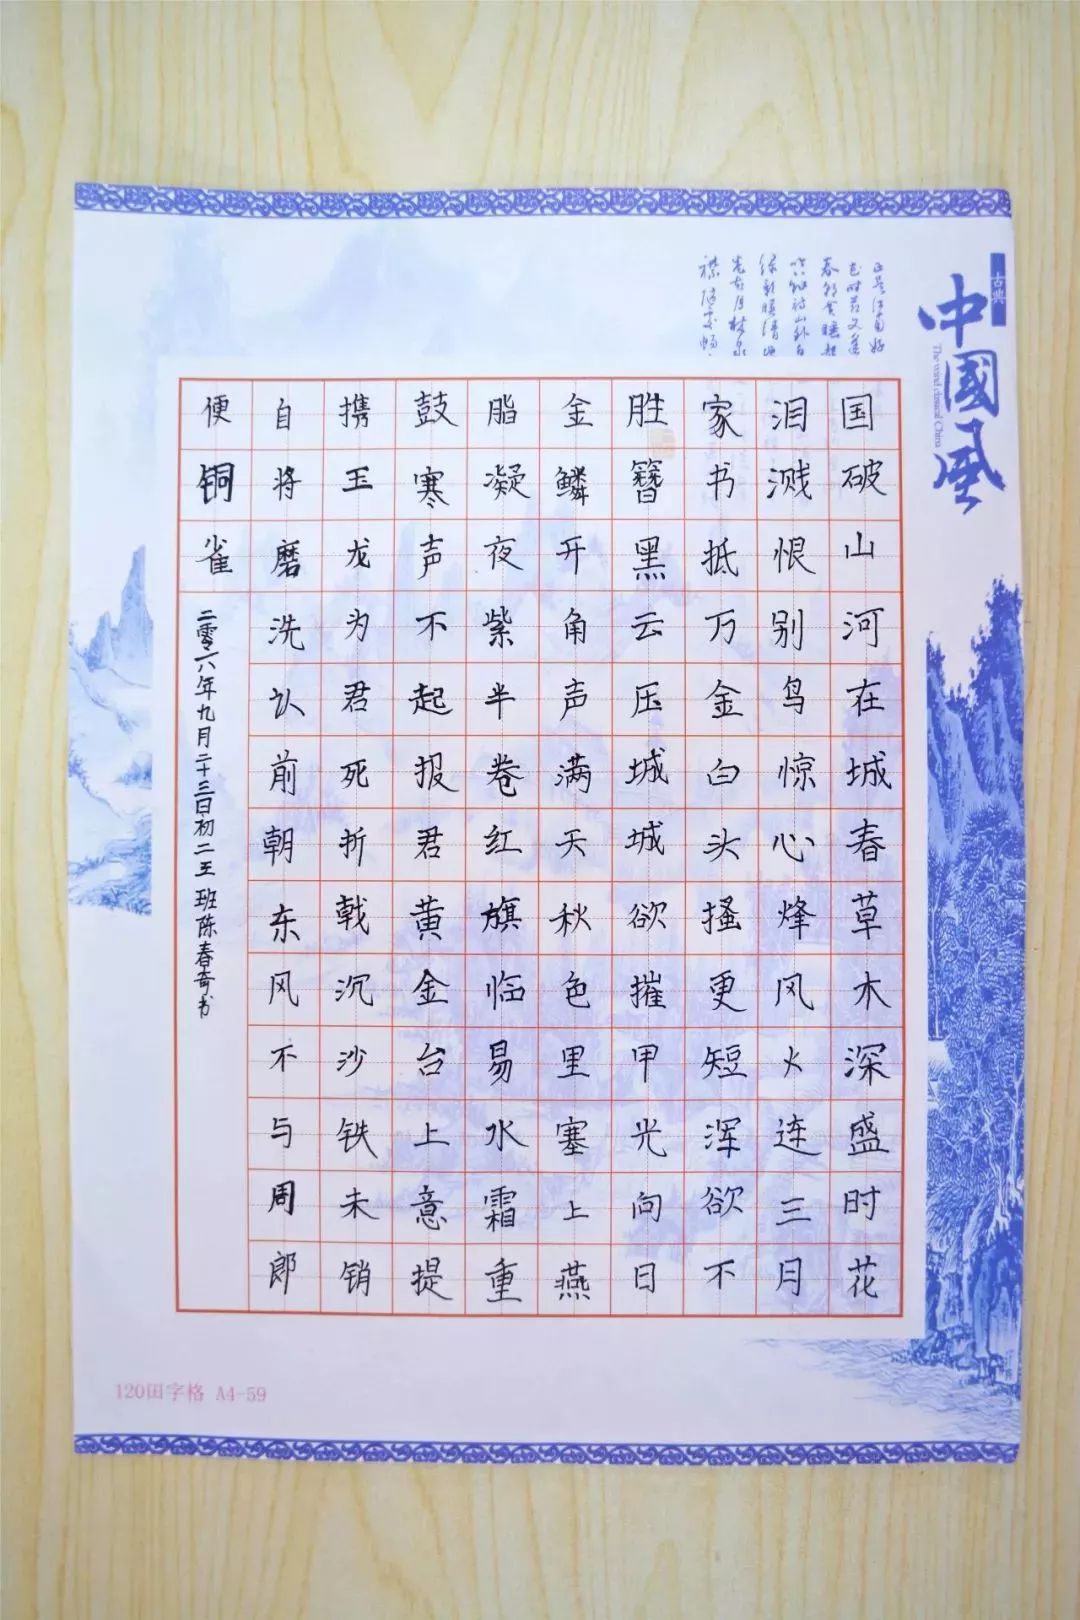 古典
中國風
国破山河在城春草木深盛时花
泪溅恨别鸟惊心烽风火连三月
家书抵万金白头搔更短浑欲不
胜簪黑云压城城欲摧甲光向日
金鳞开角声满天秋色里塞上燕
脂凝夜紫半卷红旗临易水霜重
鼓寒声不起报君黄金台上意提
携玉龙为君死折戟沉沙铁未销
自将磨洗认前朝东风不与周郎
便铜雀
二零一八年九月二十三日初二五班陈春奇书
120田字格 A4-59